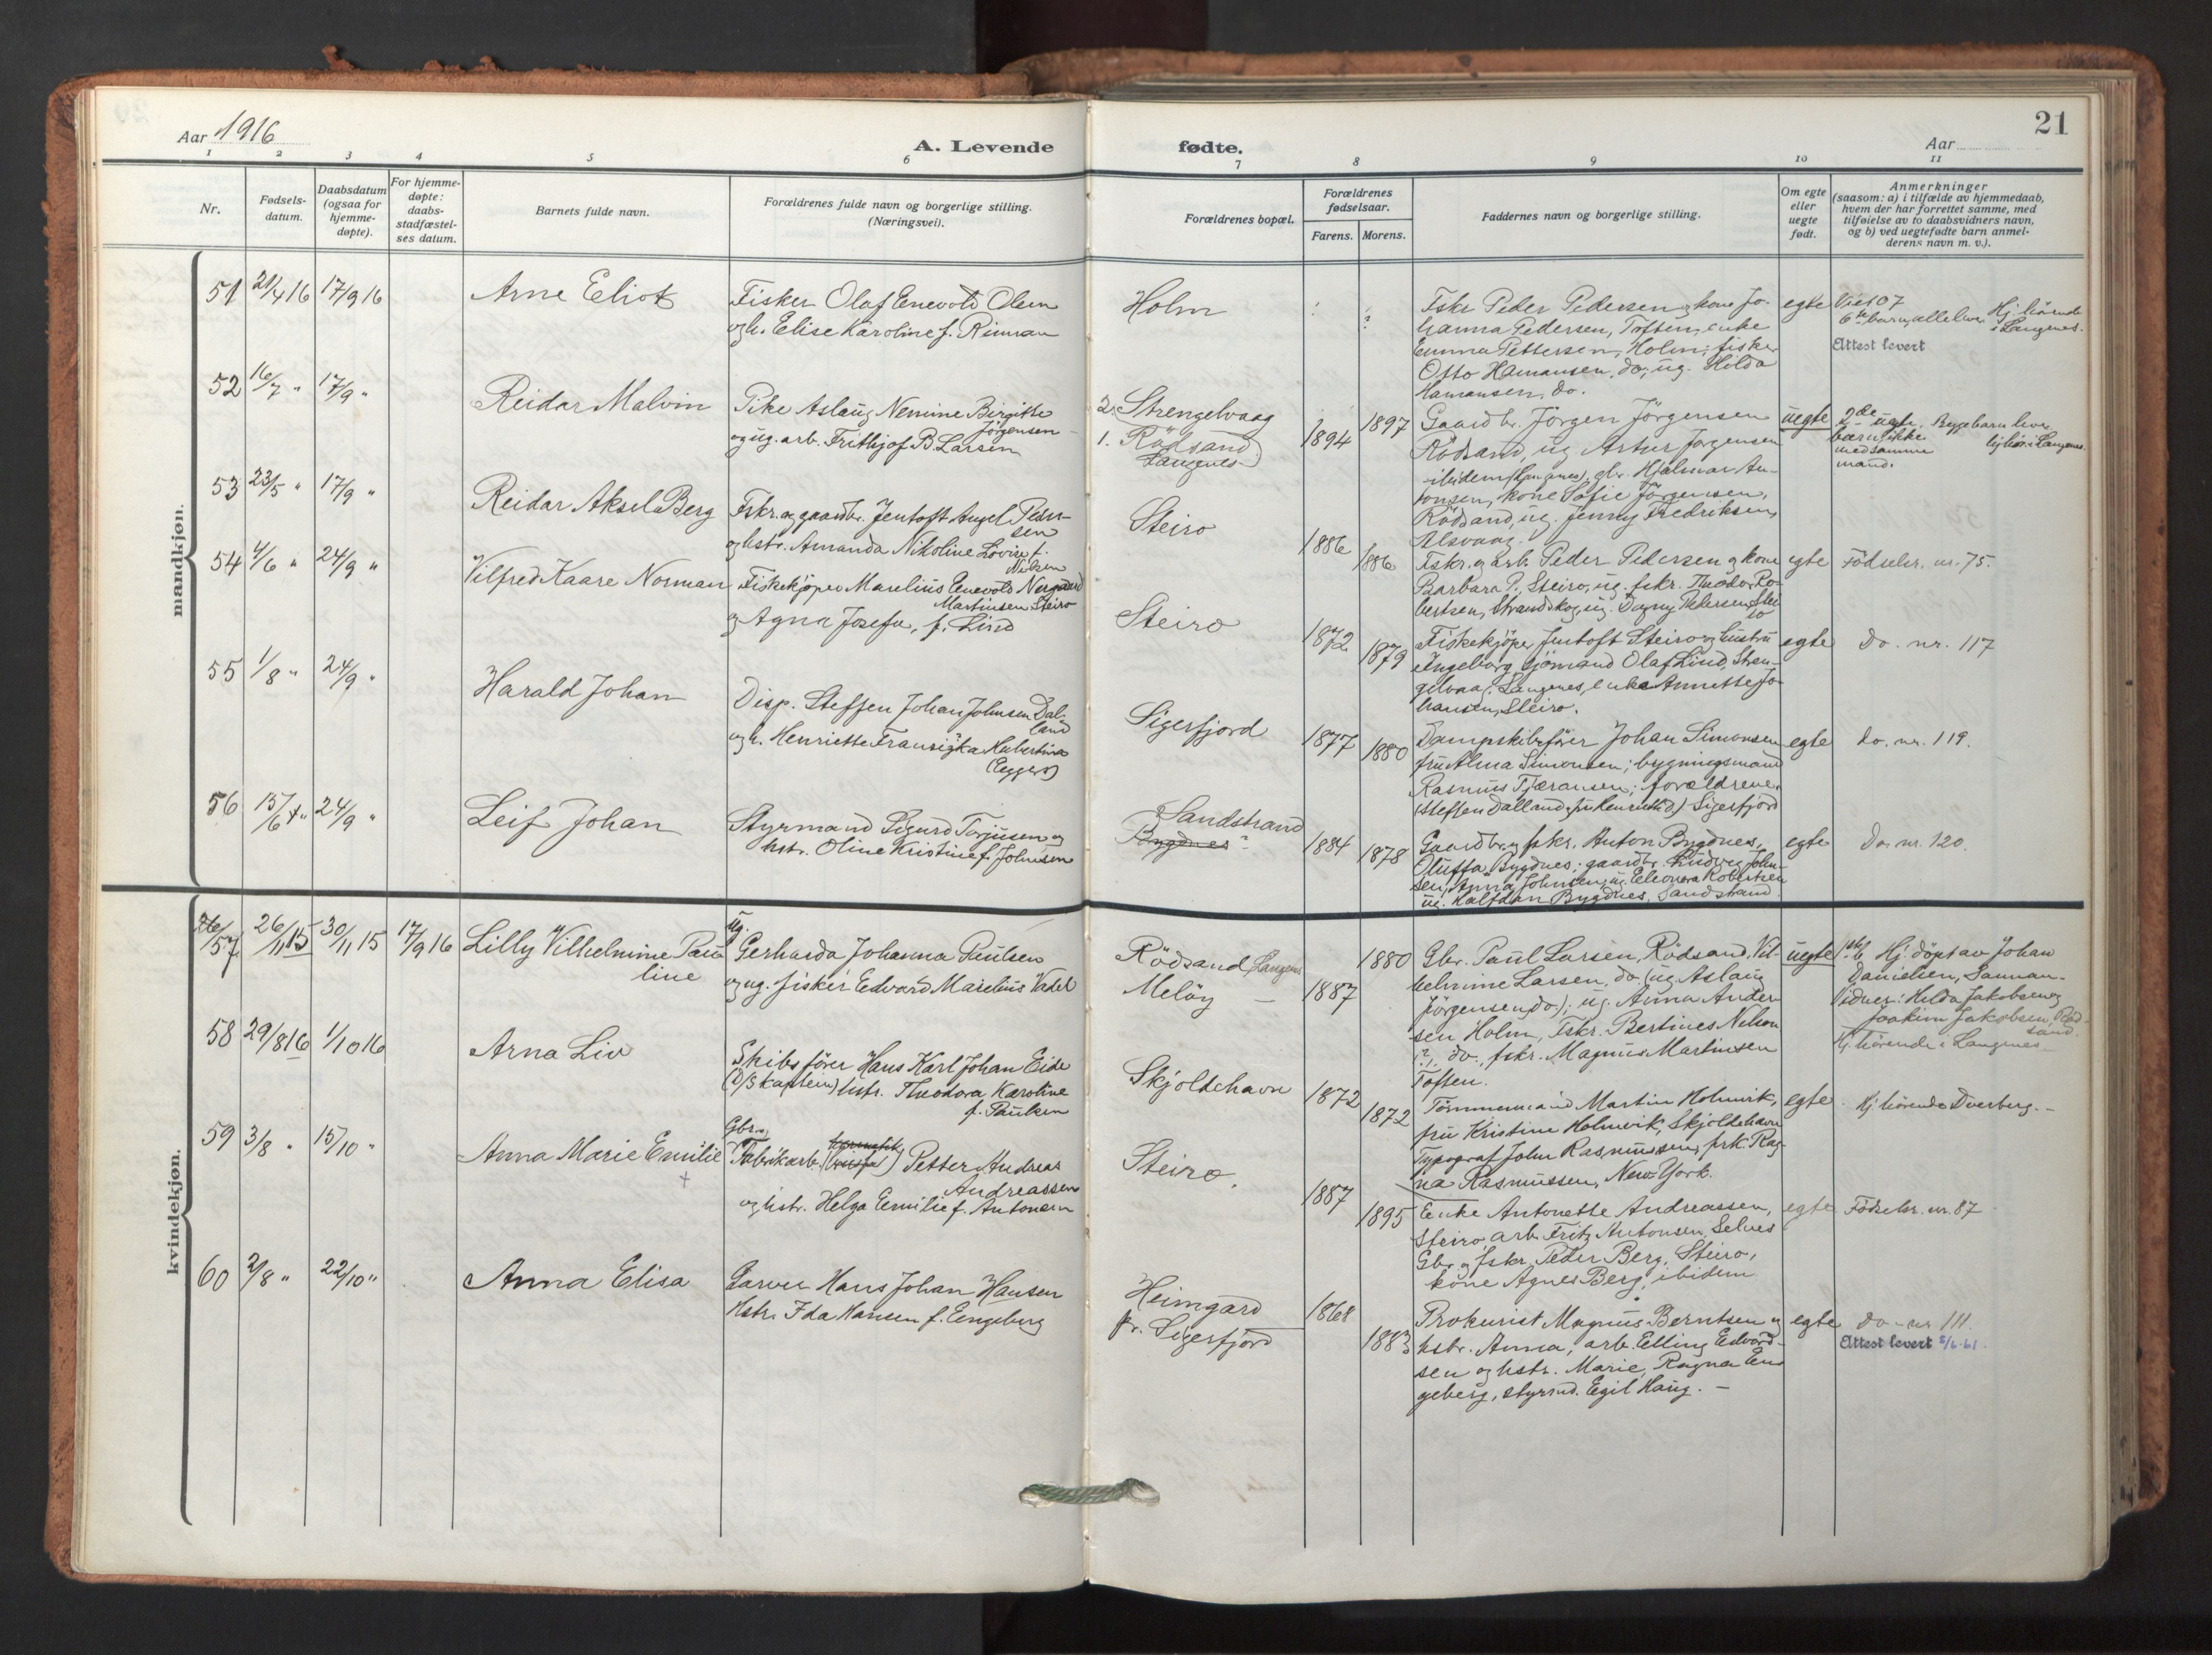 Aar 1916
A. Levende
fødte.
Aar
21
1 2 3 4 5 6 7 8 9 10 11
Nr.
Fødsels-
datum.
Daabsdatum
(ogsaa for
hjemme-
døpte).
For hjemme-
døpte:
daabs-
stadfæstel-
ses datum.
Barnets fulde navn.
Forældrenes fulde navn og borgerlige stilling.
(Næringsvei).
Forældrenes bopæl.
Forældrenes
fødselsaar.
Farens. Morens.
Faddernes navn og borgerlige stilling.
Om egte
eller
uegte
født.
Anmerkninger
(saasom: a) i tilfælde av hjemmedaab,
hvem der har forrettet samme, med
tilføielse av to daabsvidners navn,
og b) ved uegtefødte barn anmel-
derens navn m. v.).
mandkjøn.
51 21/4 16 17/9 16 Arne Eliot
Fisker Olaf Enevold Olsen
og h. Elise Karoline f. Rinnan
Holm
Fskr Peder Pedersen og kone Jo-
hanna Pedersen, Toften, enke
Emma Pettersen, Holm; fisker
Otto Hamansen, do; ug. Hilda
Hamansen, do.
egte
Viet 07
6te barn, alle lever Hj. hörende
i Langenes.
Attest levert
52 16/7 " 17/9 " Reidar Malvin
Pike Aslaug Nennine Birgitte
Jörgensen
og ug. arb. Frithjof B. Larsen
2. Strengelvaag
1. Rödsand
Langenes
1894 1897
Gaardbr. Jörgen Jörgensen
Rödsand, ug. Artur Jörgensen
ibidem (Langenes), gbr. Hjalmar An-
tonsen, kone Sofie Jörgensen,
Rödsand, ug. Jenny Fredriksen,
Alsvaag.
uegte
2de uegte. Begge barn lever
barn ikke hj.hör. i Langenes
med samme
mand.
53 23/5 " 17/9 " Reidar Aksel Berg
Fskr. og gaardbr. Jentoft Angel Peder-
sen
og hstr. Amanda Nikoline Lovise f.
Nilsen
Steiro
1886 1886
Fskr. og arb. Peder Pedersen og kone
Barbara P., Steiro, ug. fskr. Theodor Ro-
bertsen, Strandskog, ug. Dagny Pedersen Stei
ro
egte
Födselsr. nr. 75.
54 4/6 " 24/9 " Vilfred Kaare Norman
Fiskekjöper Marelius Enevold Nergaard
Martinsen Steiro
og Agna Josefa, f. Lind
Steiro
1872 1879
Fiskekjöper Jentoft Steiro og hustru
Ingeborg, gjömand Olaf Lind, Stren-
gelvaag, Langenes, enke Annette Jo-
hansen, Steiro.
egte
Do. nr. 117
55 1/8 " 24/9 " Harald Johan
Disp. Steffen Johan Johnsen Dal-
land
og h. Henriette Fransiska Hubertina
(Eggers)
Sigerfjord
1877 1880
Dampskibsförer Johan Simonsen
fru Alma Simonsen; bygningsmand
Rasmus Tjæransen; forældrene
(Steffen Dalland, fru Henriette D.) Sigerfjord
egte
do. nr. 119.
56 15/6 " 24/9 " Leif Johan
Styrmand Sigurd Torjusen og
hstr. Oline Kristine f. Johnsen
Sandstrand
Bygdnes
1884 1878
Gaardbr. og fskr. Anton Bygdnes,
Oluffa Bygdnes; gaardbr. Ludvig John-
sen, Anna Johnsen, ug. Eleonora Robertsen
ug. Halfdan Bygdnes, Sandstrand
egte
Do. nr. 120.
kvindekjøn.
57 26/11 15 30/11 15 17/9 16 Lilly Vilhelmine Pau-
line
Ug.
Gerharda Johanna Paulsen
og ug. fisker Edvard Marelius Vadel
Rödsand Langenes
Melöy
1887 1880
Gbr. Paul Larsen, Rödsand, Vil-
helmine Larsen, do (ug. Aslaug
Jörgensen, do), ug. Anna Ander
sen Holm, Fskr. Bertines Nelson
do., fskr. Magnus Martinsen
Toften.
uegte
1ste b Hj. döpt av Johan
Danielsen, Sannan-
Vidner: Hilda Jakobsen og
Joakim Jakobsen, Röd-
sand.
Hj. hörende i Langenes
58 29/8 16 1/10 16 Arna Liv
Skibsförer Hans Karl Johan Eide
(D/S kaptein) hstr. Theodora Karoline
f. Paulsen
Skjoldehavn
1872 1872
Tömmermand Martin Holmvik,
fru Kristine Holmvik, Skjoldehavn
Typograf John Rasmussen, frk. Rag-
na Rasmussen, New-York.
egte
Hj. hörende Dverberg.
59 3/8 " 15/10 " Anna Marie Emilie
Gbr. og
Fabrikarb. Petter Andreas
Andreassen
og hstr. Helga Emilie f. Antonsen
Steiro.
1887 1895
Enke Antonette Andreassen,
Steiro arb. Fritz Antonsen, Selnes
Gbr. og fskr. Peder Berg, Steiro,
kone Agnes Berg, ibidem
egte
Födselsr. nr. 87
60 2/8 " 22/10 " Anna Elisa
Garver Hans Johan Hansen
Hstr. Ida Hansen f. Engeberg
Heimgard
pr. Sigerfjord
1868 1883
Prokurist Magnus Berntsen og
hstr. Anna, arb. Elling Edvard-
sen og hstr. Marie, Ragna En-
geberg, styrmd. Egil Haug. -
egte
do - nr 111.
Attest levert 8/6-61.